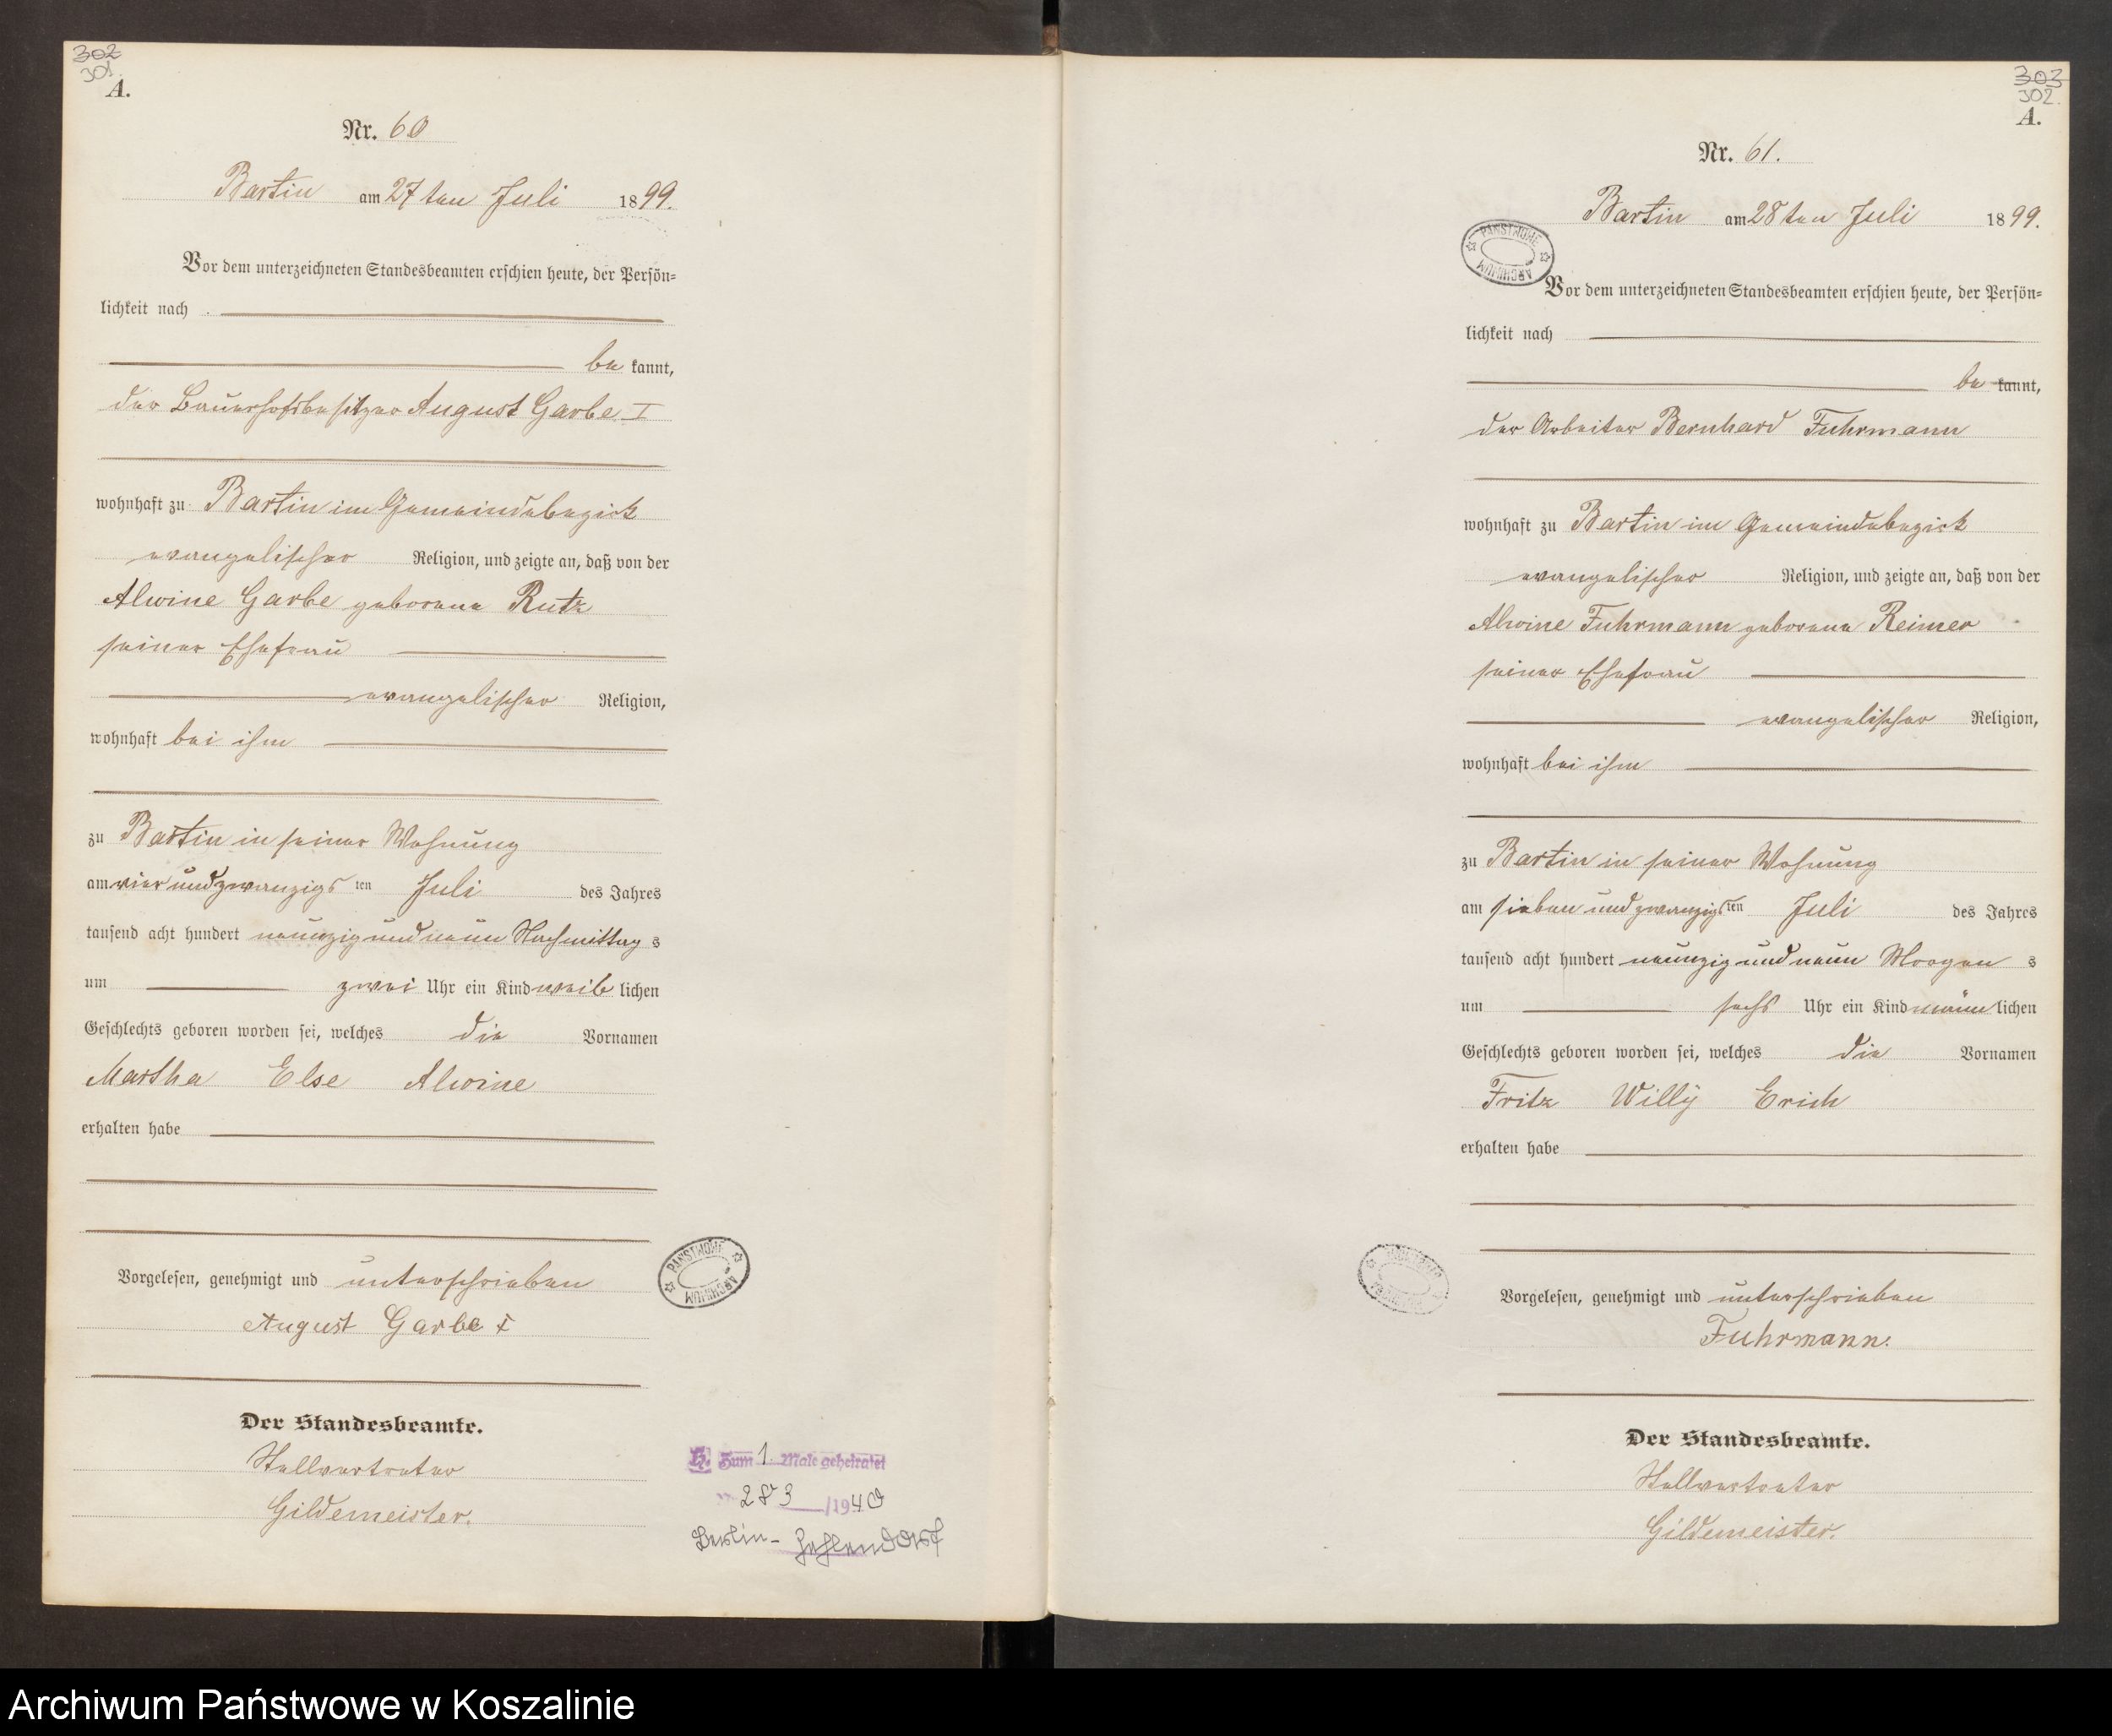 302
301.
A.
Nr. 60
Bartin am 27ten Juli 1899.
Vor dem unterzeichneten Standesbeamten erschien heute, der Persön=
lichkeit nach
be kannt,
der Bauerhofsbesitzer August Garbe I
wohnhaft zu Bartin im Gemeindebezirk
evangelischer Religion, und zeigte an, daß von der
Alwine Garbe geborene Rutz
seiner Ehefrau
evangelischer Religion,
wohnhaft bei ihm
zu Bartin in seiner Wohnung
am vier und zwanzigsten Juli des Jahres
tausend acht hundert neunzig und neun Nachmittags
um zwei Uhr ein Kind weiblichen
Geschlechts geboren worden sei, welches die Vornamen
Martha Else Alwine
erhalten habe
Vorgelesen, genehmigt und unterschrieben
August Garbe I
Der Standesbeamte.
Stellvertreter
Gildemeister.
PAŃSTWOWE ARCHIWUM
H. Zum 1. Male geheiratet
283/1940
Berlin-Zehlendorf
303
302.
A.
Nr. 61.
Bartin am 28ten Juli 1899.
PAŃSTWOWE ARCHIWUM
Vor dem unterzeichneten Standesbeamten erschien heute, der Persön=
lichkeit nach
be kannt,
der Arbeiter Bernhard Fuhrmann
wohnhaft zu Bartin im Gemeindebezirk
evangelischer Religion, und zeigte an, daß von der
Alwine Fuhrmann geborene Reimer
seiner Ehefrau
evangelischer Religion,
wohnhaft bei ihm
zu Bartin in seiner Wohnung
am sieben und zwanzigsten Juli des Jahres
tausend acht hundert neunzig und neun Morgens
um sechs Uhr ein Kind männlichen
Geschlechts geboren worden sei, welches die Vornamen
Fritz Willy Erich
erhalten habe
Vorgelesen, genehmigt und unterschrieben
Fuhrmann.
Der Standesbeamte.
Stellvertreter
Gildemeister.
Archiwum Państwowe w Koszalinie